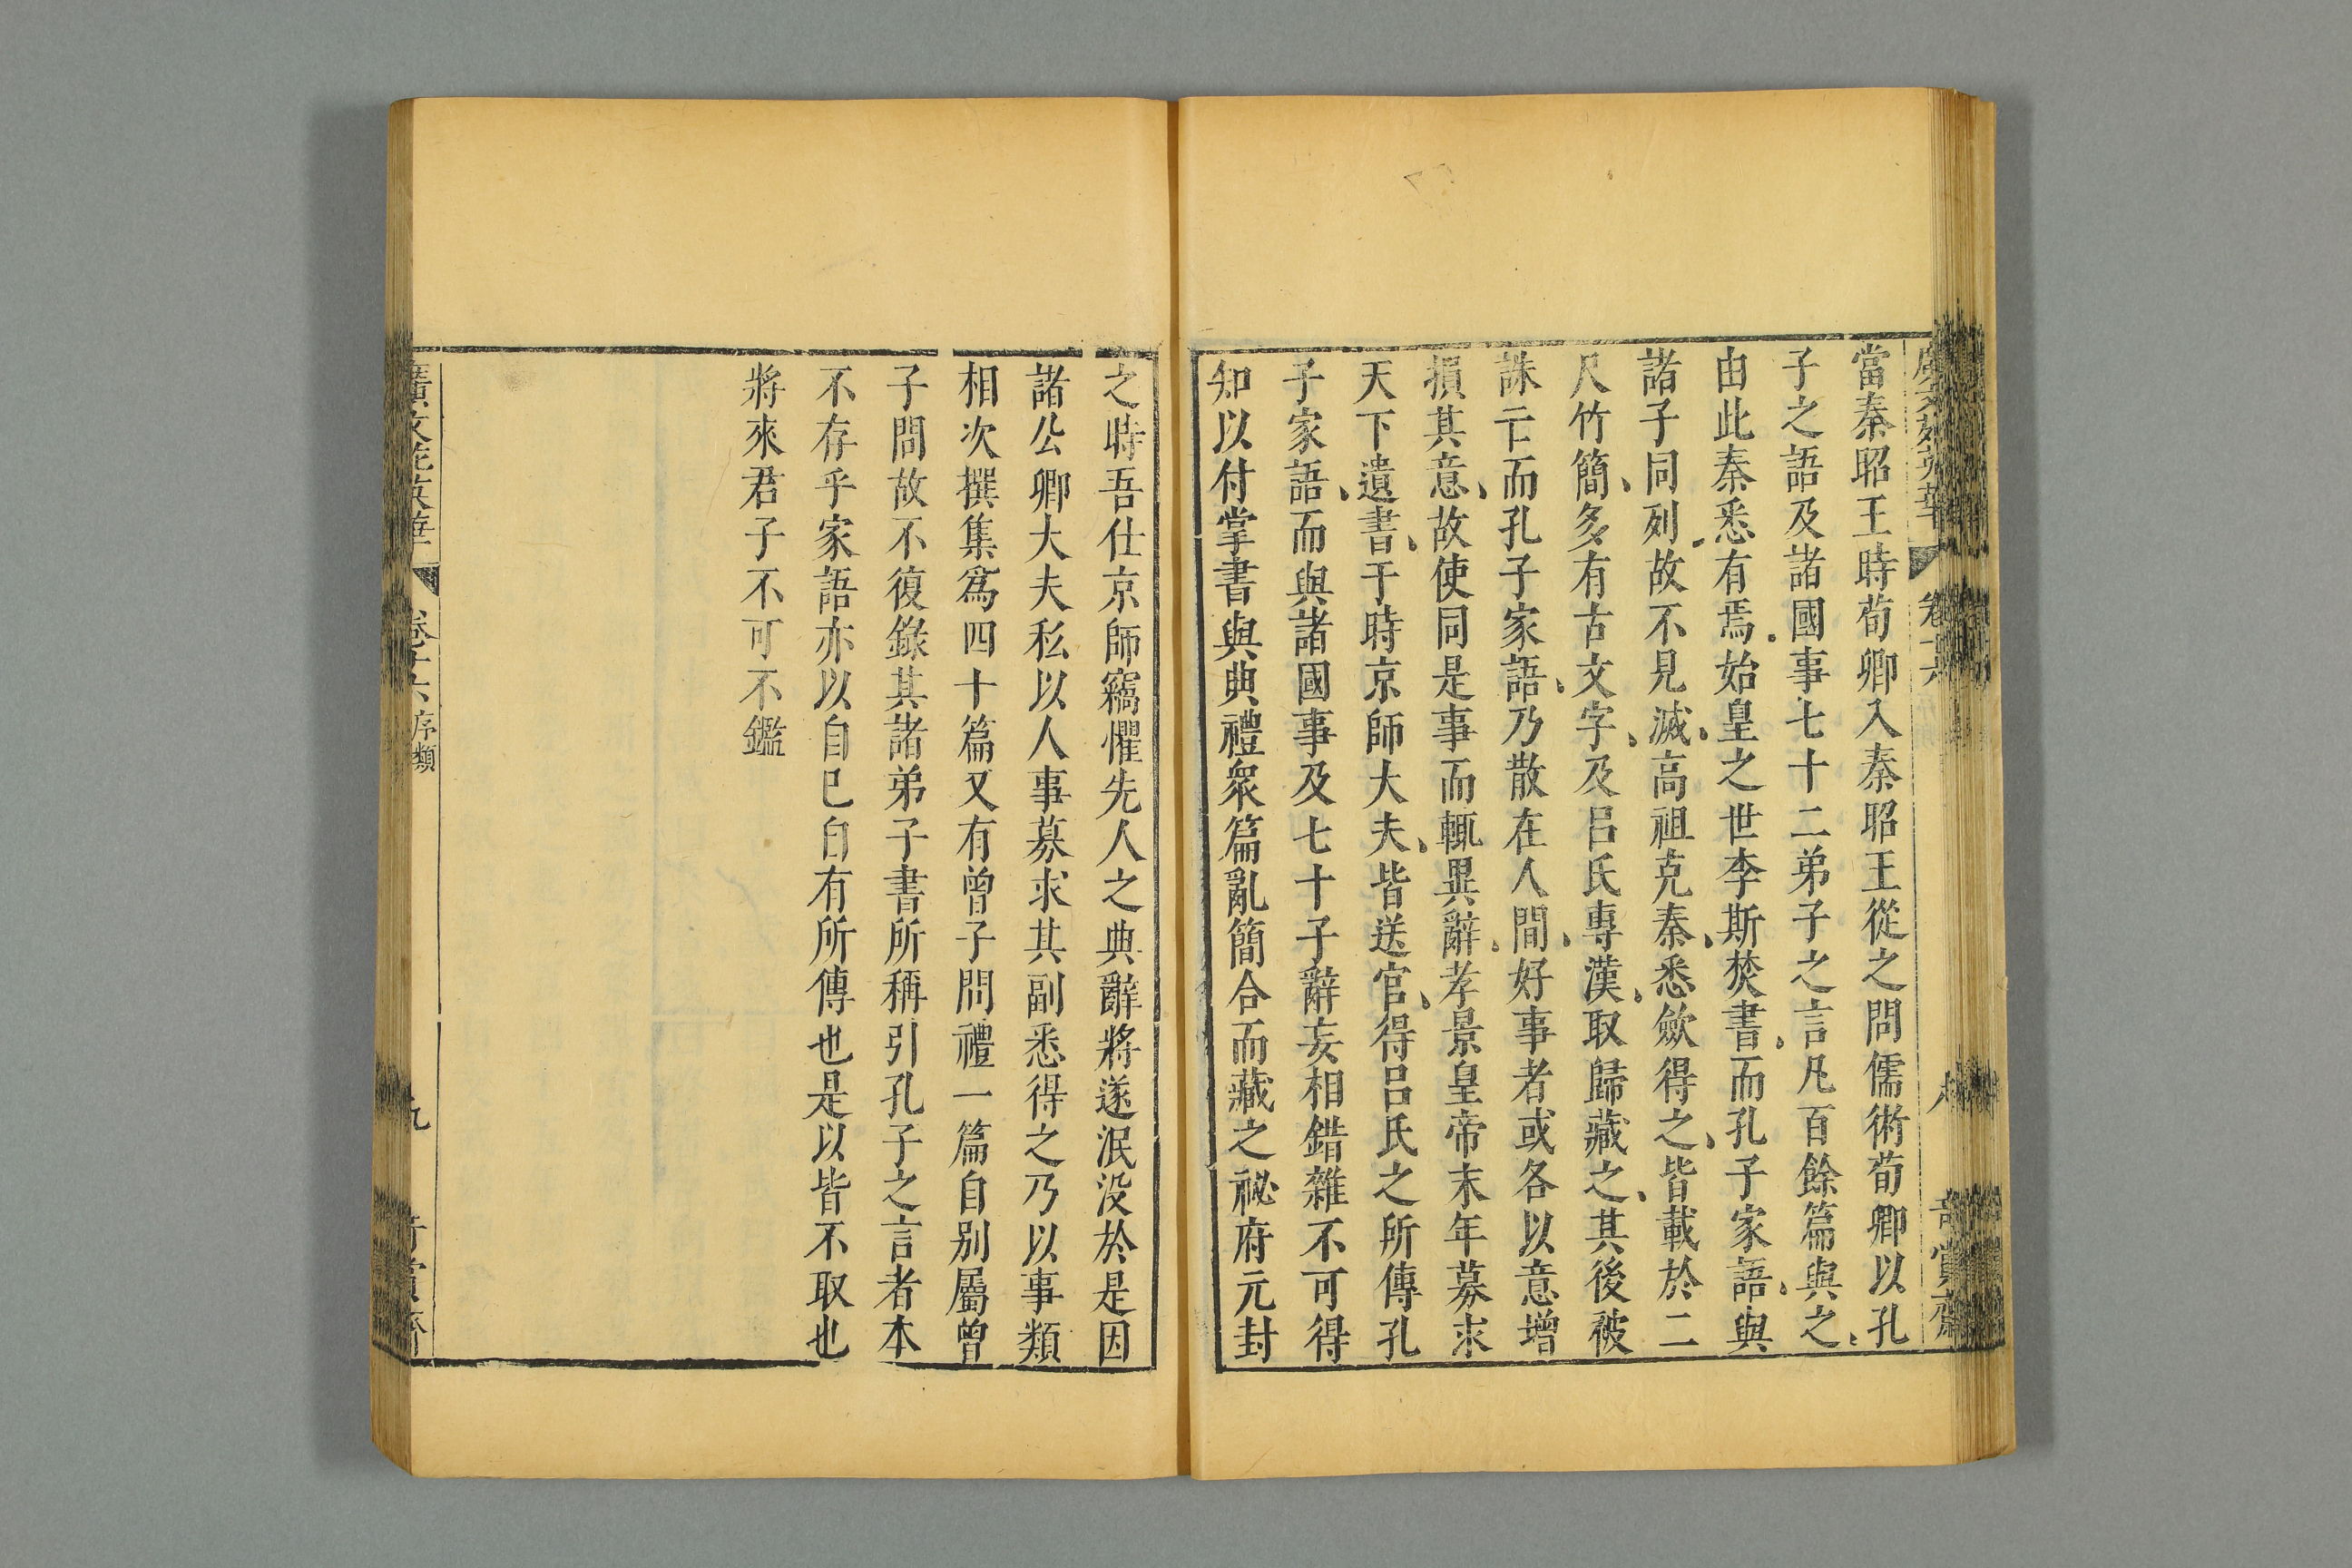 當秦昭王時荀卿入秦昭王從之問儒術荀卿以孔
子之語及諸國事七十二弟子之言凡百餘篇與之
由此秦悉有焉始皇之世李斯焚書而孔子家語與
諸子同列故不見滅高祖克秦悉斂得之皆載於二
尺竹簡多有古文字及呂氏專漢取歸藏之其後被
誅亡而孔子家語乃散在人間好事者或各以意增
損其意故使同是事而輒異辭孝景皇帝末年募求
天下遺書于時京師大夫皆送官得呂氏之所傳孔
子家語而與諸國事及七十子辭妄相錯雜不可得
知以付掌書與典禮衆篇亂簡合而藏之祕府元封
之時吾仕京師竊懼先人之典辭將遂泯没於是因
諸公卿大夫私以人事募求其副悉得之乃以事類
相次撰集爲四十篇又有曾子問禮一篇自别屬曾
子問故不復錄其諸弟子書所稱引孔子之言者本
不存乎家語亦以自巳自有所傳也是以皆不取也
將來君子不可不鑑
廣文苑英華 卷十六 序類 九 奇賞齋